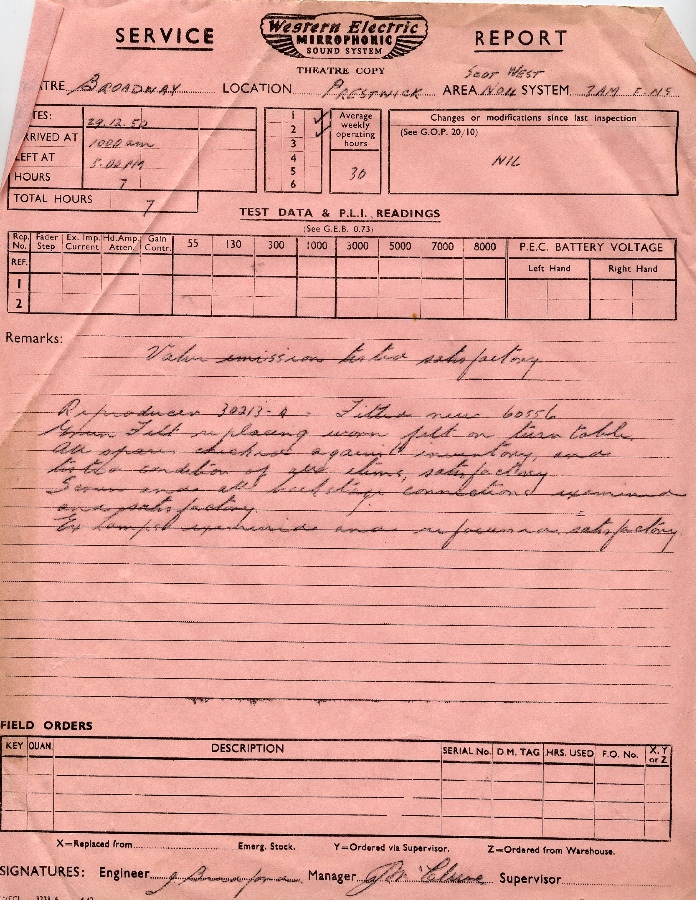 SERVICE
Western Electric
MIRROPHONIC
SOUND SYSTEM
REPORT
THEATRE COPY
SCOT WEST
TRE BROADWAY LOCATION PRESTWICK AREA NO4 SYSTEM
TES: 29.12.50
RRIVED AT 1000 am
LEFT AT 5.00 PM
HOURS 7
TOTAL HOURS 7
1
2
3
4
5
6
Average weekly operating hours
30
Changes or modifications since last inspection
(See G.O.P. 20/10)
NIL
TEST DATA & P.L.I. READINGS
(See G.E.B. 0.73)
Rep. No. Fader Step Ex. Imp. Current Hd. Amp. Atten. Gain Contr. 55 130 300 1000 3000 5000 7000 8000 P.E.C. BATTERY VOLTAGE
Left Hand Right Hand
REF.
1
2
Remarks:
Valve emission tested satisfactory
Reproducer 30213-A - Fitted new 60556
Green Felt replacing worn felt on turntable
All spares checked against inventory, and
tested condition of all items, satisfactory
Screen and all backstage connections examined
and satisfactory.
Ex lamps examined and refocussed satisfactory
FIELD ORDERS
KEY QUAN. DESCRIPTION SERIAL No. D.M. TAG HRS. USED F.O. No. X, Y or Z
X=Replaced from Emerg. Stock. Y=Ordered via Supervisor. Z=Ordered from Warehouse.
SIGNATURES: Engineer Manager Supervisor